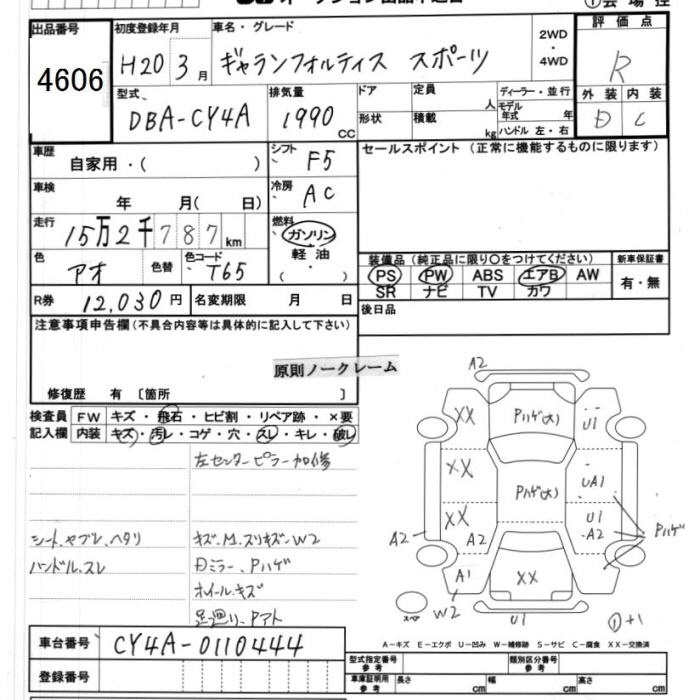 出品番号
4606
初度登録年月
H20 3月
車名・グレード
ギャランフォルティス スポーツ
2WD
・
4WD
評価点
R
外装 内装
D C
型式
DBA-CY4A
排気量
1990 CC
ドア
形状
定員 人
積載 kg
ディーラー・並行
モデル年式 年
ハンドル 左・右
車歴
自家用・( )
シフト F5
セールスポイント(正常に機能するものに限ります)
車検 年 月( 日)
冷房 AC
走行 15万2千787km
燃料
ガソリン
軽油
( ・ )
色 アオ 色替 色コード T65
装備品(純正品に限り○をつけてください)
新車保証書
PS PW ABS エアB AW
SR ナビ TV カワ
有・無
R券 12,030円 名変期限 月 日
後日品
注意事項申告欄(不具合内容等は具体的に記入して下さい)
原則ノークレーム
修復歴 有 〔箇所 〕
検査員記入欄
FW キズ・飛石・ヒビ割・リペア跡・×要
内装 キズ・汚レ・コゲ・穴・スレ・キレ・破レ
左センターピラー加修
シート、ヤブレ、ヘタリ
キズ.M.スリキズ・W2
ハンドル.スレ
Dミラー、Pハゲ
ホイール.キズ
足廻り、Pアト
A2
XX Pハゲ(大) U1
XX Pハゲ(大) UA1
XX A2 U1 A2
A2 Pハゲ
A1 XX
W2 U1
スペア
①+1
A−キズ E−エクボ U−凹み W−補修跡 S−サビ C−腐食 XX−交換済
車台番号 CY4A-0110444
登録番号
型式指定番号 参考
類別区分番号 参考
車庫証明用 参考 長さ cm 幅 cm 高さ cm